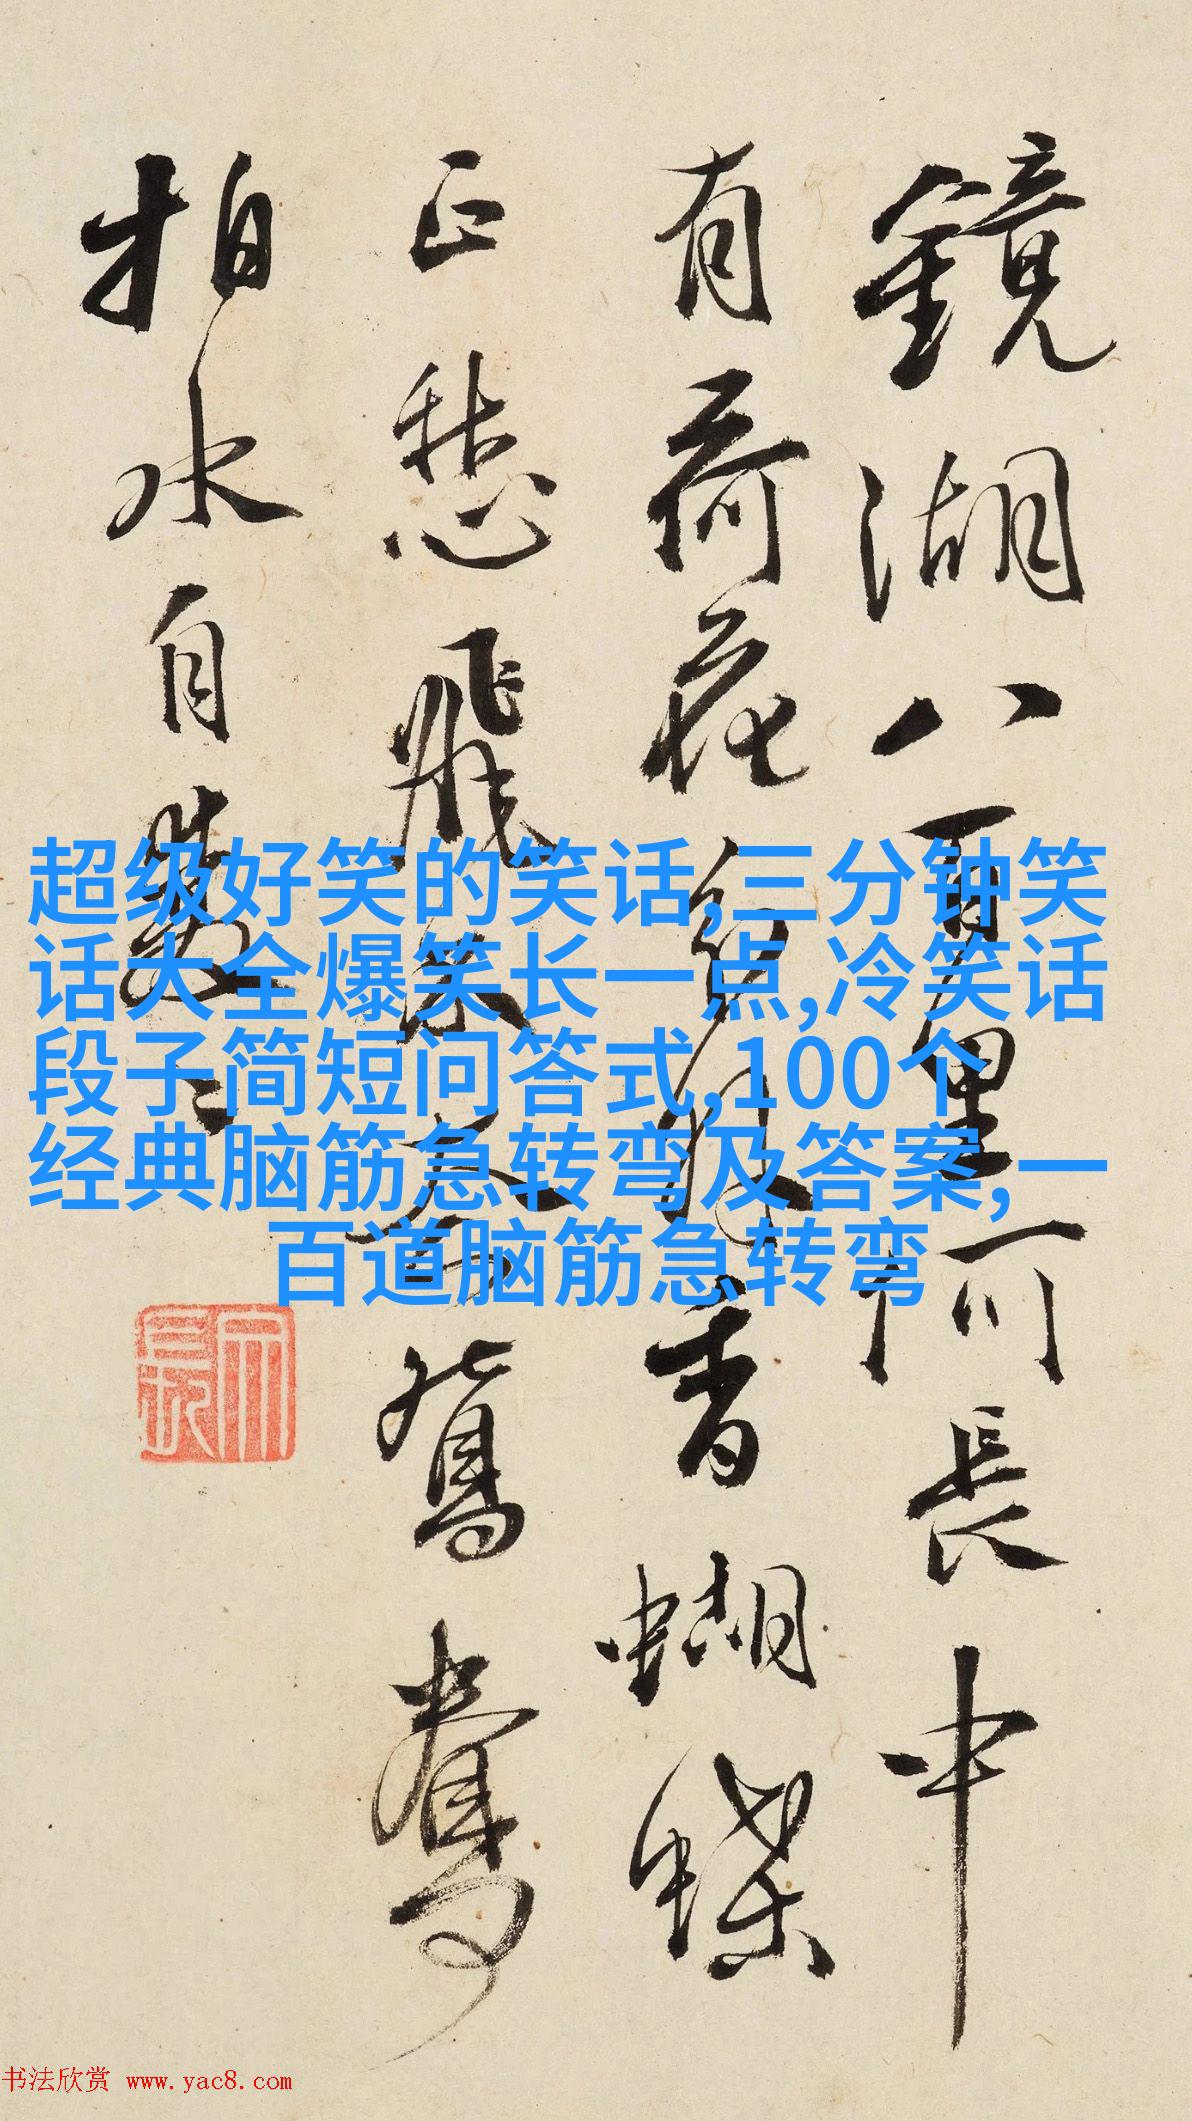 鏡湖八百里何長中
有荷花分外香蝴蝶
正愁飛不過鴛鴦
拍水自雙〻
超级好笑的笑话,三分钟笑
话大全爆笑长一点,冷笑话
段子简短问答式,100个
经典脑筋急转弯及答案,一
百道脑筋急转弯
书法欣赏 www.yac8.com